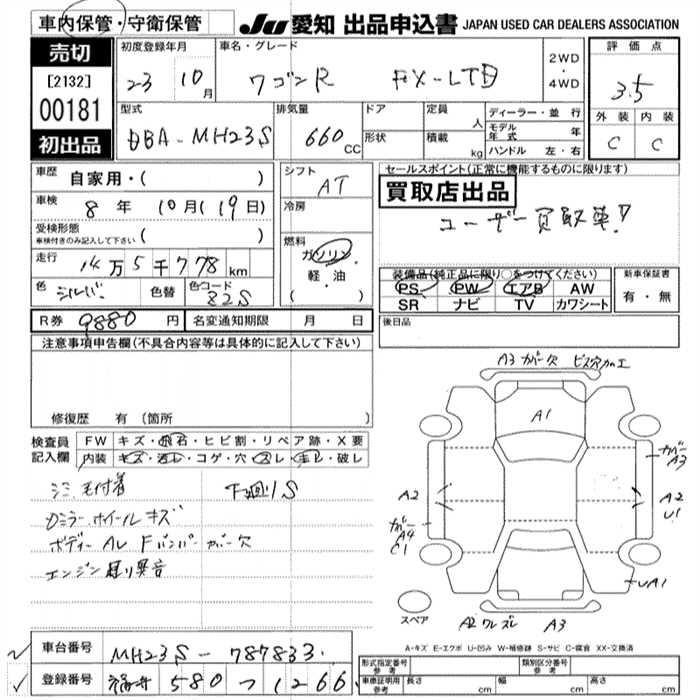 車内保管・守衛保管
JU 愛知 出品申込書 JAPAN USED CAR DEALERS ASSOCIATION
売切
[2132]
00181
初出品
初度登録年月
23 10月
車名・グレード
ワゴンR FX-LTD
2WD
・
4WD
評価点
3.5
外装 内装
C C
型式
DBA-MH23S
排気量
660 CC
ドア
形状
定員 人
積載 kg
ディーラー・並行
モデル年式 年
ハンドル 左・右
車歴 自家用・( )
車検 8年 10月(19日)
受検形態
車検付きのみ記入して下さい ( )
走行 14万5千778km
色 シルバー 色替 色コード Z2S
シフト AT
冷房
燃料
ガソリン
・
軽・油
( )
セールスポイント(正常に機能するものに限ります)
買取店出品
ユーザー買取車!
装備品(純正品に限り○をつけてください)
PS PW エアB AW
SR ナビ TV カワシート
新車保証書
有・無
R券 9880円 名変通知期限 月 日
後日品
注意事項申告欄(不具合内容等は具体的に記入して下さい)
修復歴 有(箇所 )
検査員
記入欄
FW キズ・飛石・ヒビ割・リペア跡・X要
内装 キズ・汚レ・コゲ・穴・スレ・キレ・破レ
シミ 毛付着 下廻りS
Dミラー ホイールキズ
ボディーAU Fバンパーカバー欠
エンジン廻り異音
A3 カバー欠 ビス穴加工
A1
カバー
A3
A2
A2
U1
カバー
A4
C1
UA1
スペア
A2 ワレズレ A3
A-キズ E-エクボ U-凹み W-補修跡 S-サビ C-腐食 XX-交換済
車台番号 MH23S-787833
登録番号 福井 580 つ 1266
形式指定番号
参考
類別区分番号
参考
車庫証明用
参考
長さ cm 幅 cm 高さ cm